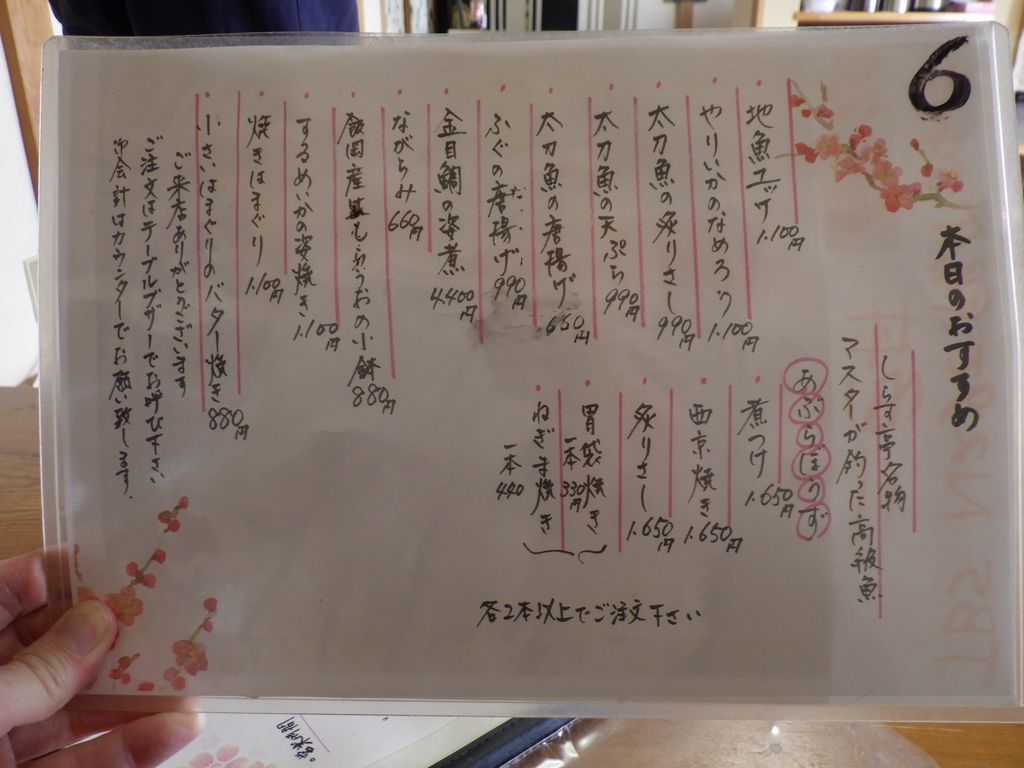 6
本日のおすすめ
しらす亭名物
マスターが釣った高級魚
あぶらぼうず
煮つけ 1.650円
西京焼き 1.650円
炙りさし 1.650円
胃袋焼き 一本 330円
ねぎま焼き 一本 440
各2本以上でご注文下さい
地魚ユッケ 1.100円
やりいかのなめろう 1.100円
太刀魚の炙りさし 990円
太刀魚の天ぷら 990円
太刀魚の唐揚げ 650円
ふぐの唐揚げ 990円
金目鯛の姿煮 4.400円
ながらみ 660円
飯岡産 の小鉢 880円
するめいかの姿焼き 1.100円
焼きはまぐり 1.100円
小さいはまぐりのバター焼き 880円
ご来店ありがとうございます
ご注文はテーブルブザーでお呼び下さい
御会計はカウンターでお願い致します.